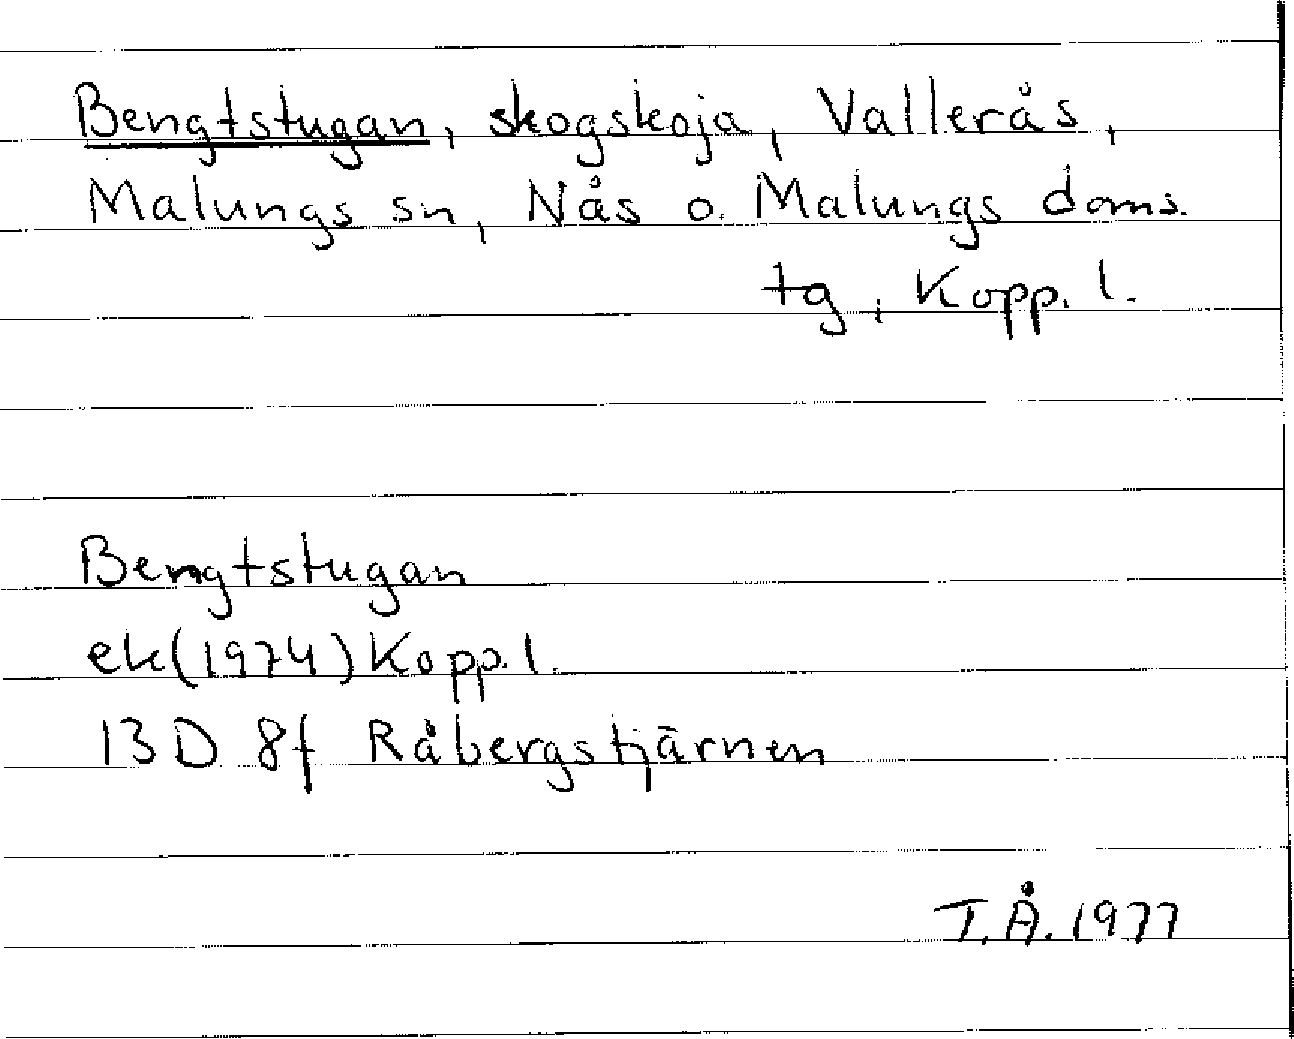 Bengtstugan, skogskoja, Vallerås,
Malungs sn, Nås o. Malungs doms.
tg, Kopp. l.
Bengtstugan
ek(1974) Kopp. l.
13 D 8f Råbergstjärnen
T.Å. 1977